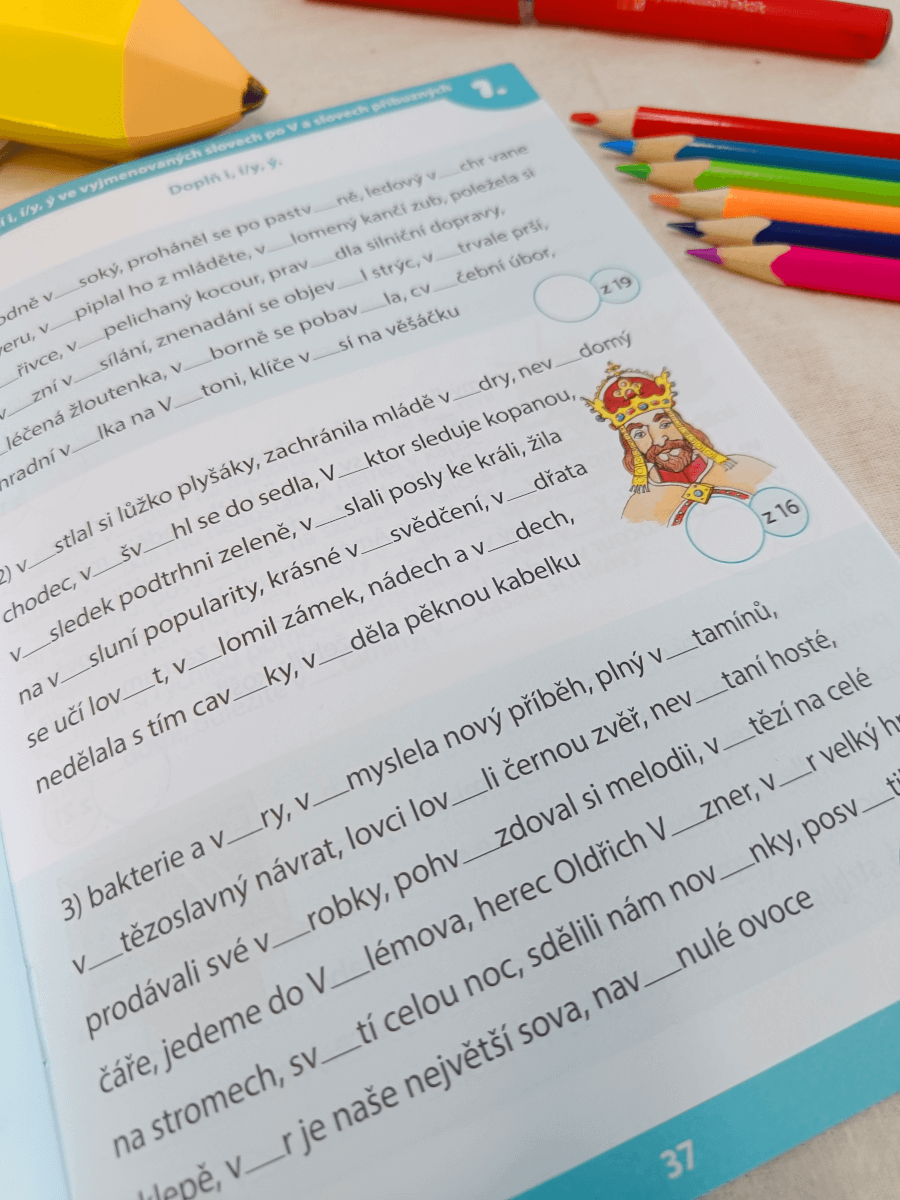 i, í/y, ý ve vyjmenovaných slovech po V a slovech příbuzných
Doplň i, í/y, ý.
v___soký, proháněl se po pastv___ně, ledový v___chr vane
v___piplal ho z mláděte, v___lomený kančí zub, poležela si
___řivce, v___pelichaný kocour, prav___dla silniční dopravy,
v___zní v___sílání, znenadání se objev___l strýc, v___trvale prší,
léčená žloutenka, v___borně se pobav___la, cv___čební úbor,
v___lka na V___toni, klíče v___sí na věšáčku
z 19
2) v___stlal si lůžko plyšáky, zachránila mládě v___dry, nev___domý
chodec, v___šv___hl se do sedla, V___ktor sleduje kopanou,
v___sledek podtrhni zeleně, v___slali posly ke králi, žila
na v___sluní popularity, krásné v___svědčení, v___dřata
se učí lov___t, v___lomil zámek, nádech a v___dech,
nedělala s tím cav___ky, v___děla pěknou kabelku
z 16
3) bakterie a v___ry, v___myslela nový příběh, plný v___tamínů,
v___tězoslavný návrat, lovci lov___li černou zvěř, nev___taní hosté,
prodávali své v___robky, pohv___zdoval si melodii, v___tězí na celé
čáře, jedeme do V___lémova, herec Oldřich V___zner, v___r velký
na stromech, sv___tí celou noc, sdělili nám nov___nky, posv___
v___r je naše největší sova, nav___nulé ovoce
37